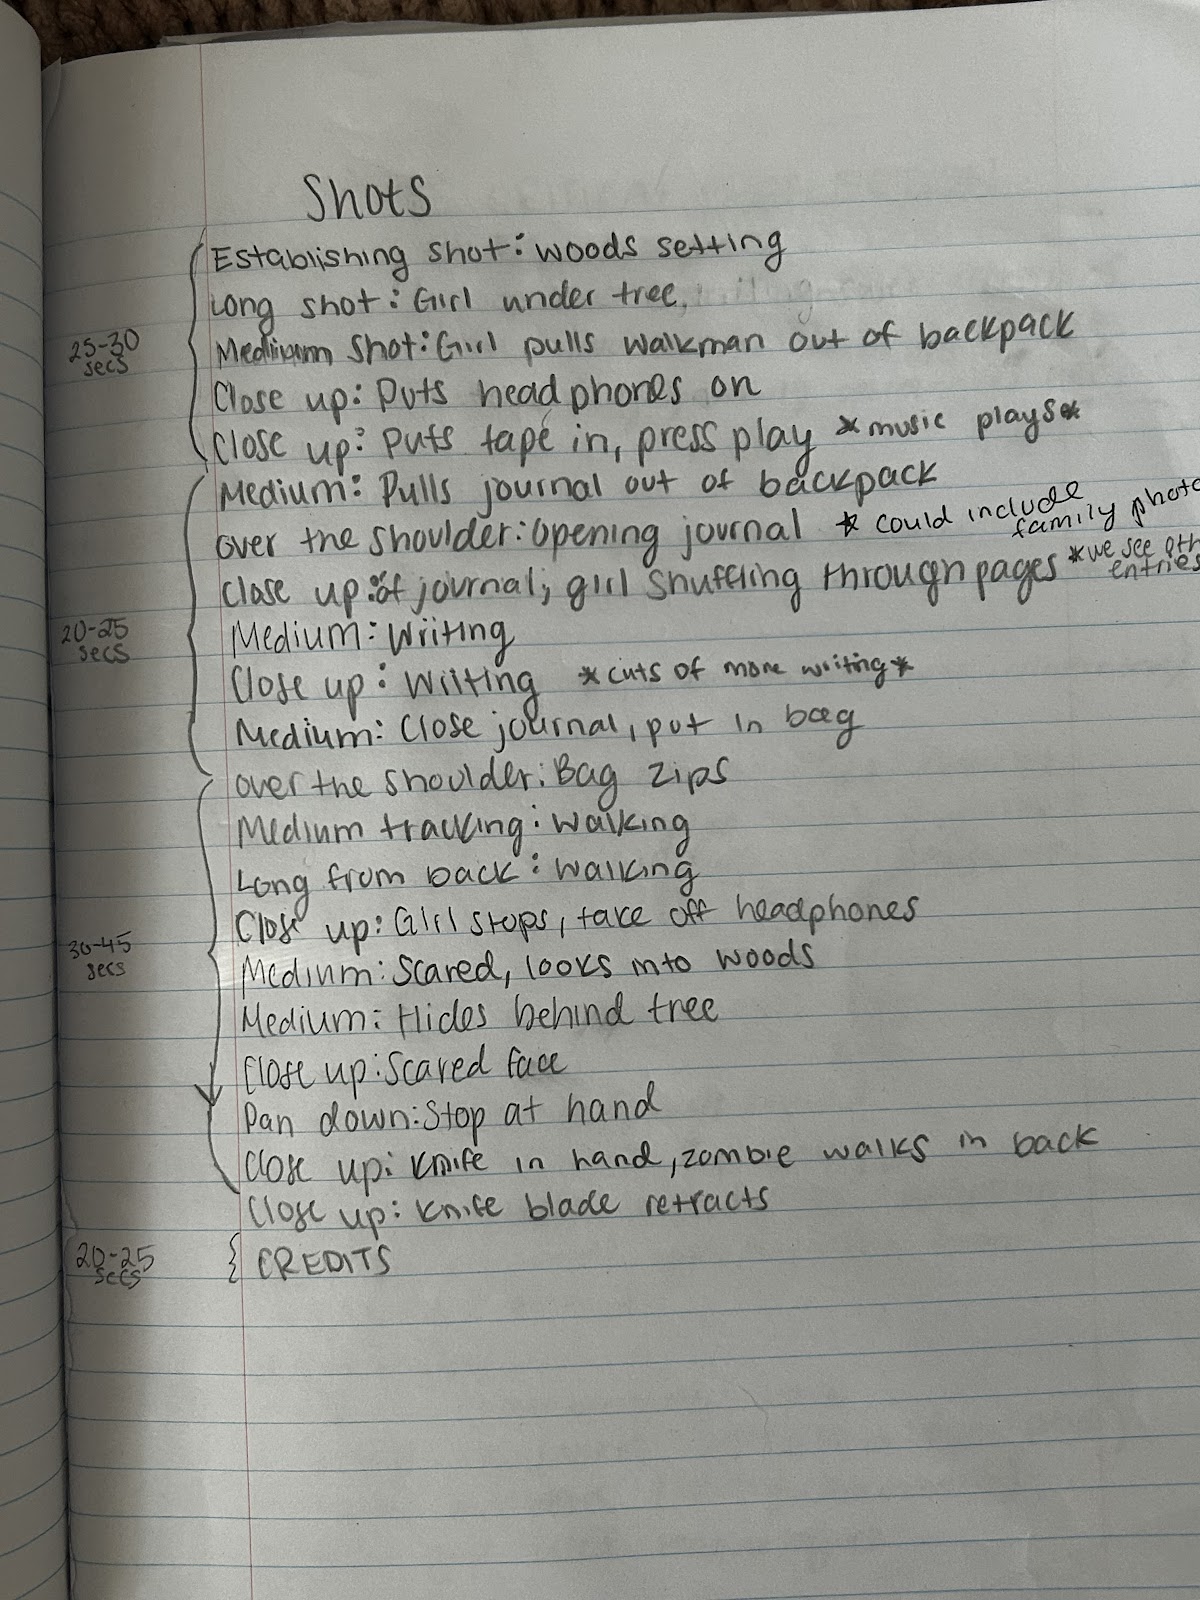 Shots
Establishing shot: woods setting
Long shot: Girl under tree
25-30
secs
Medium Shot: Girl pulls walkman out of backpack
Close up: Puts headphones on
Close up: Puts tape in, press play *music plays*
Medium: Pulls journal out of backpack
over the shoulder: Opening journal * could include
family photo
Close up: of journal; girl shuffling through pages *we see oth
entries
20-25
secs
Medium: Writing
Close up: Writing *cuts of more writing*
Medium: Close journal, put in bag
over the shoulder: Bag zips
Medium tracking: walking
Long from back: walking
Close up: Girl stops, take off headphones
30-45
secs
Medium: Scared, looks into woods
Medium: Hides behind tree
Close up: Scared face
Pan down: Stop at hand
Close up: Knife in hand, zombie walks in back
Close up: Knife blade retracts
20-25
secs
{ CREDITS